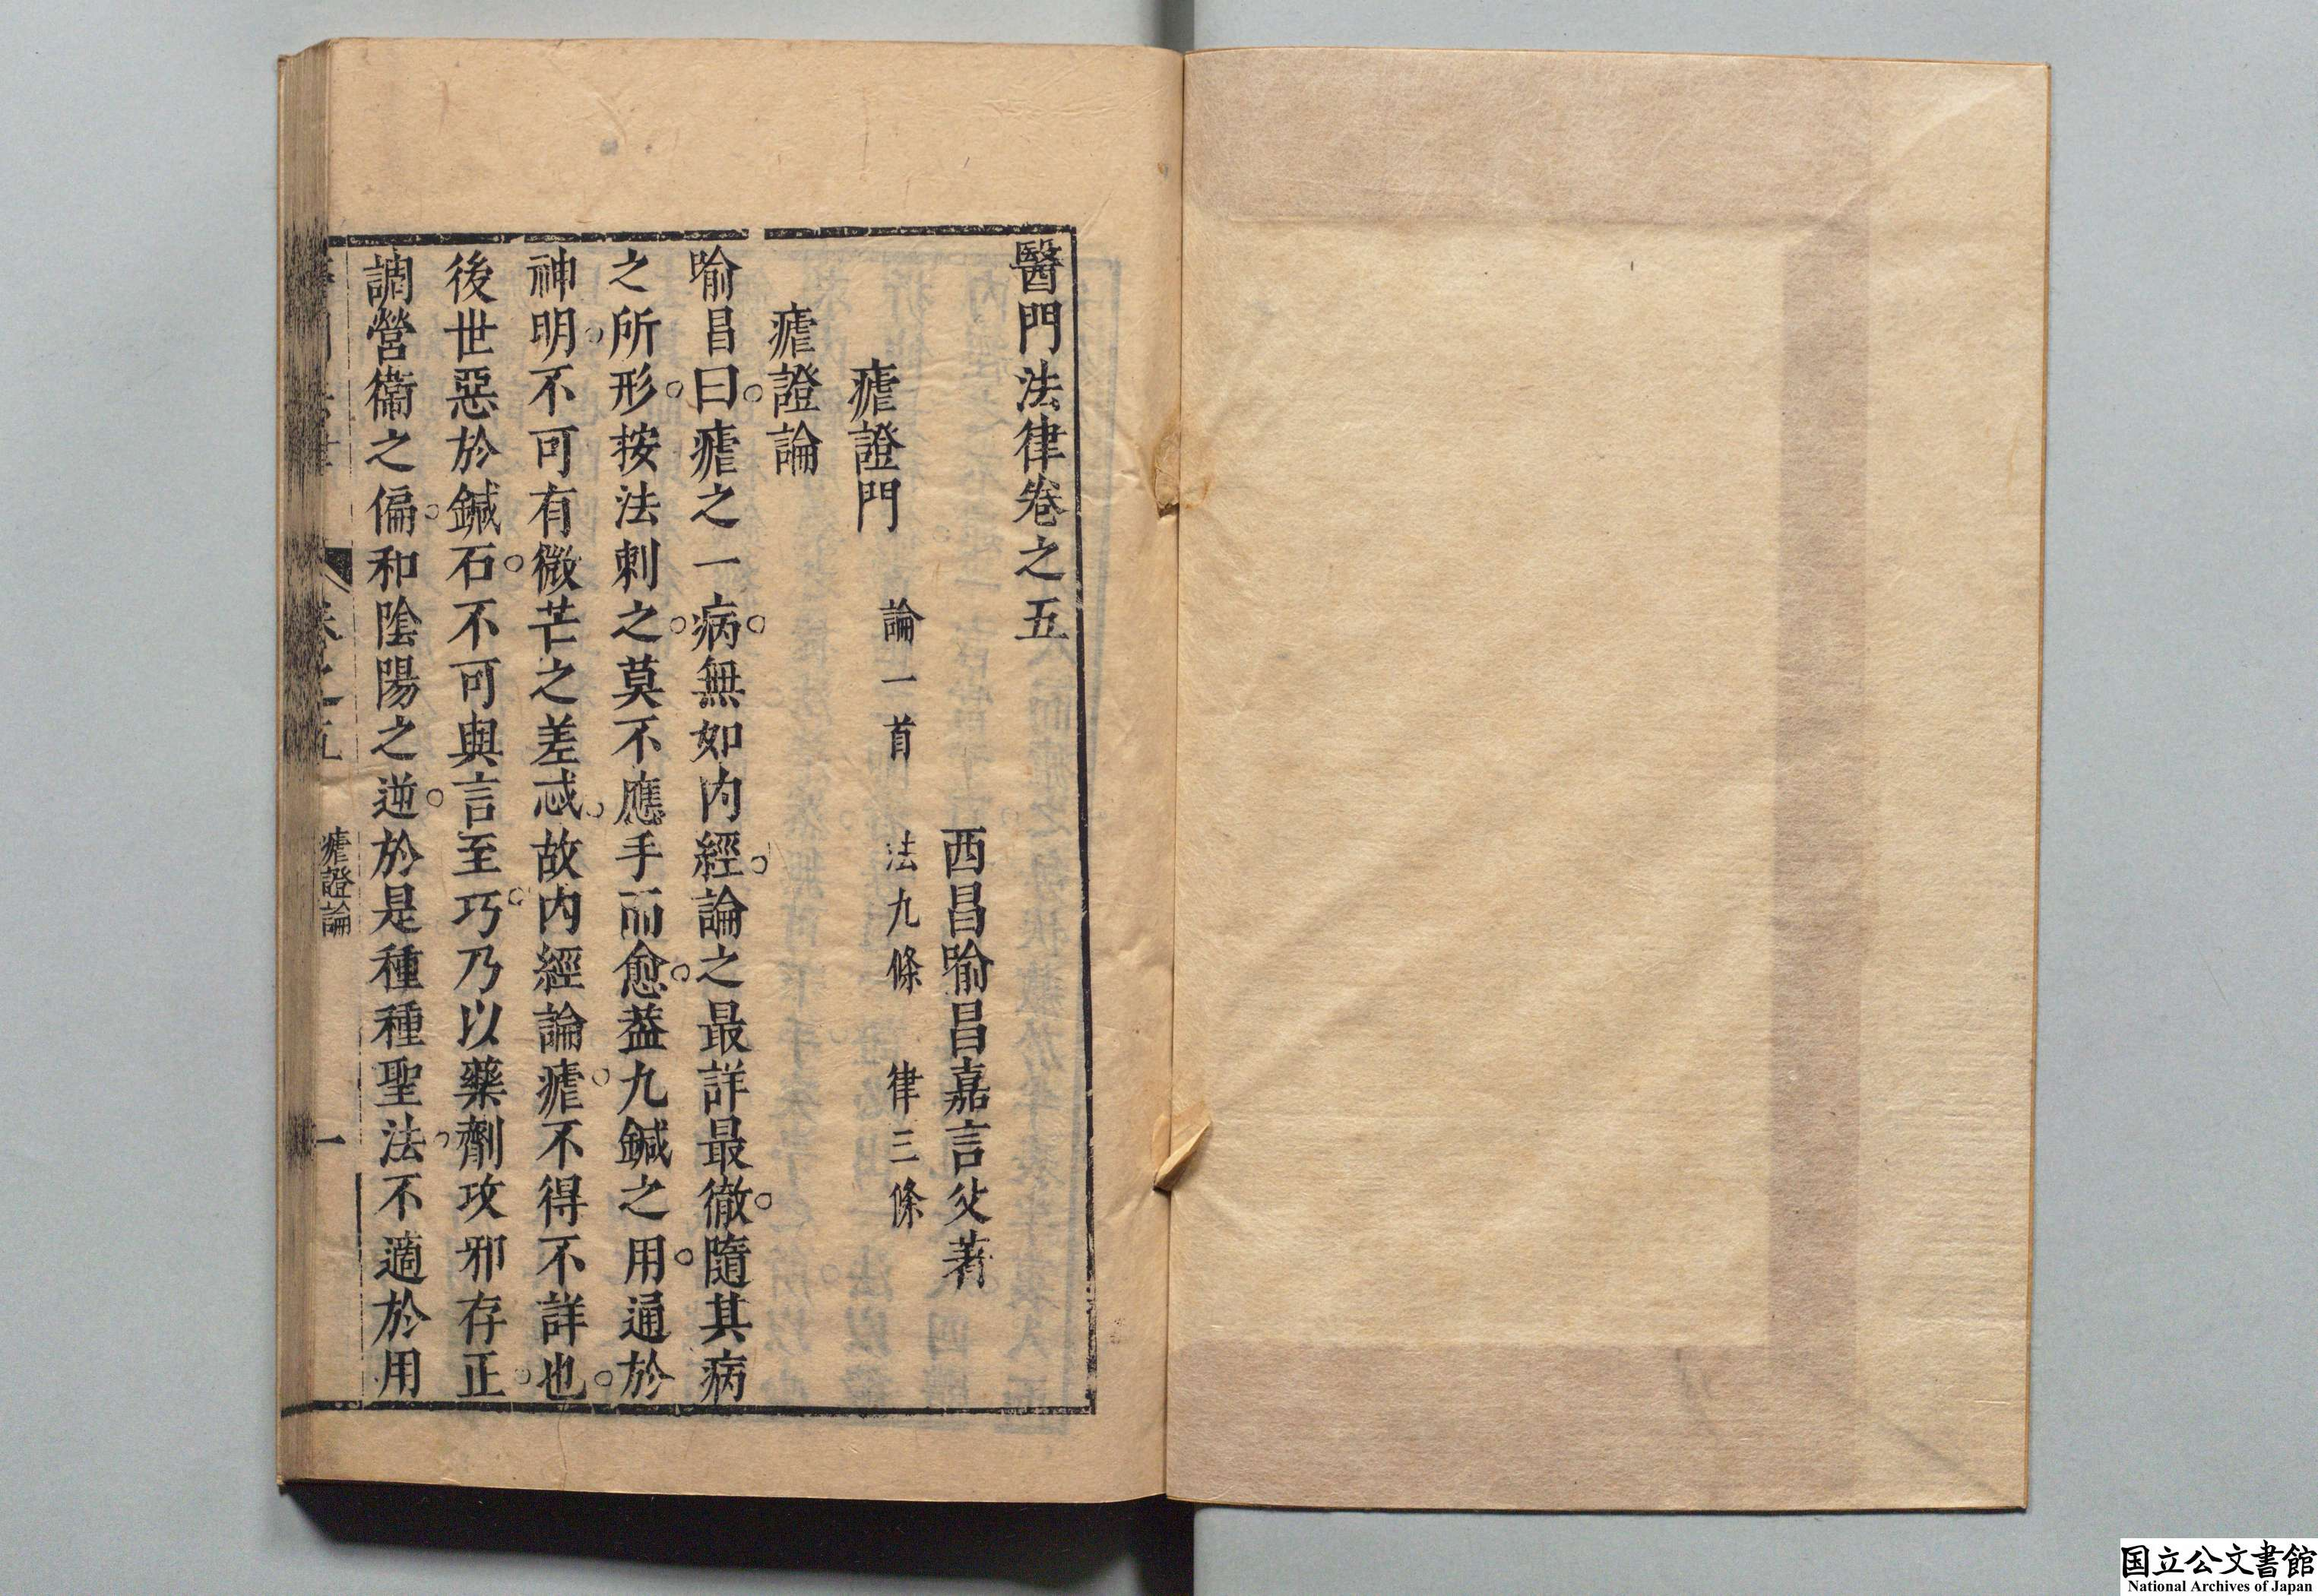 醫門法律卷之五
西昌喻昌嘉言父著
瘧證門　論一首　法九條　律三條
瘧證論
喻昌曰。瘧之一病。無如内經。論之最詳最徹。隨其病
之所形。按法刺之。莫不應手而愈。葢九鍼之用。通於
神明。不可有微芒之差忒。故内經論瘧。不得不詳也。
後世惡於鍼石。不可與言至巧。乃以藥劑攻邪存正。
調營衞之偏。和陰陽之逆。於是種種聖法。不適於用
卷之五
瘧證論
一
国立公文書館
National Archives of Japan